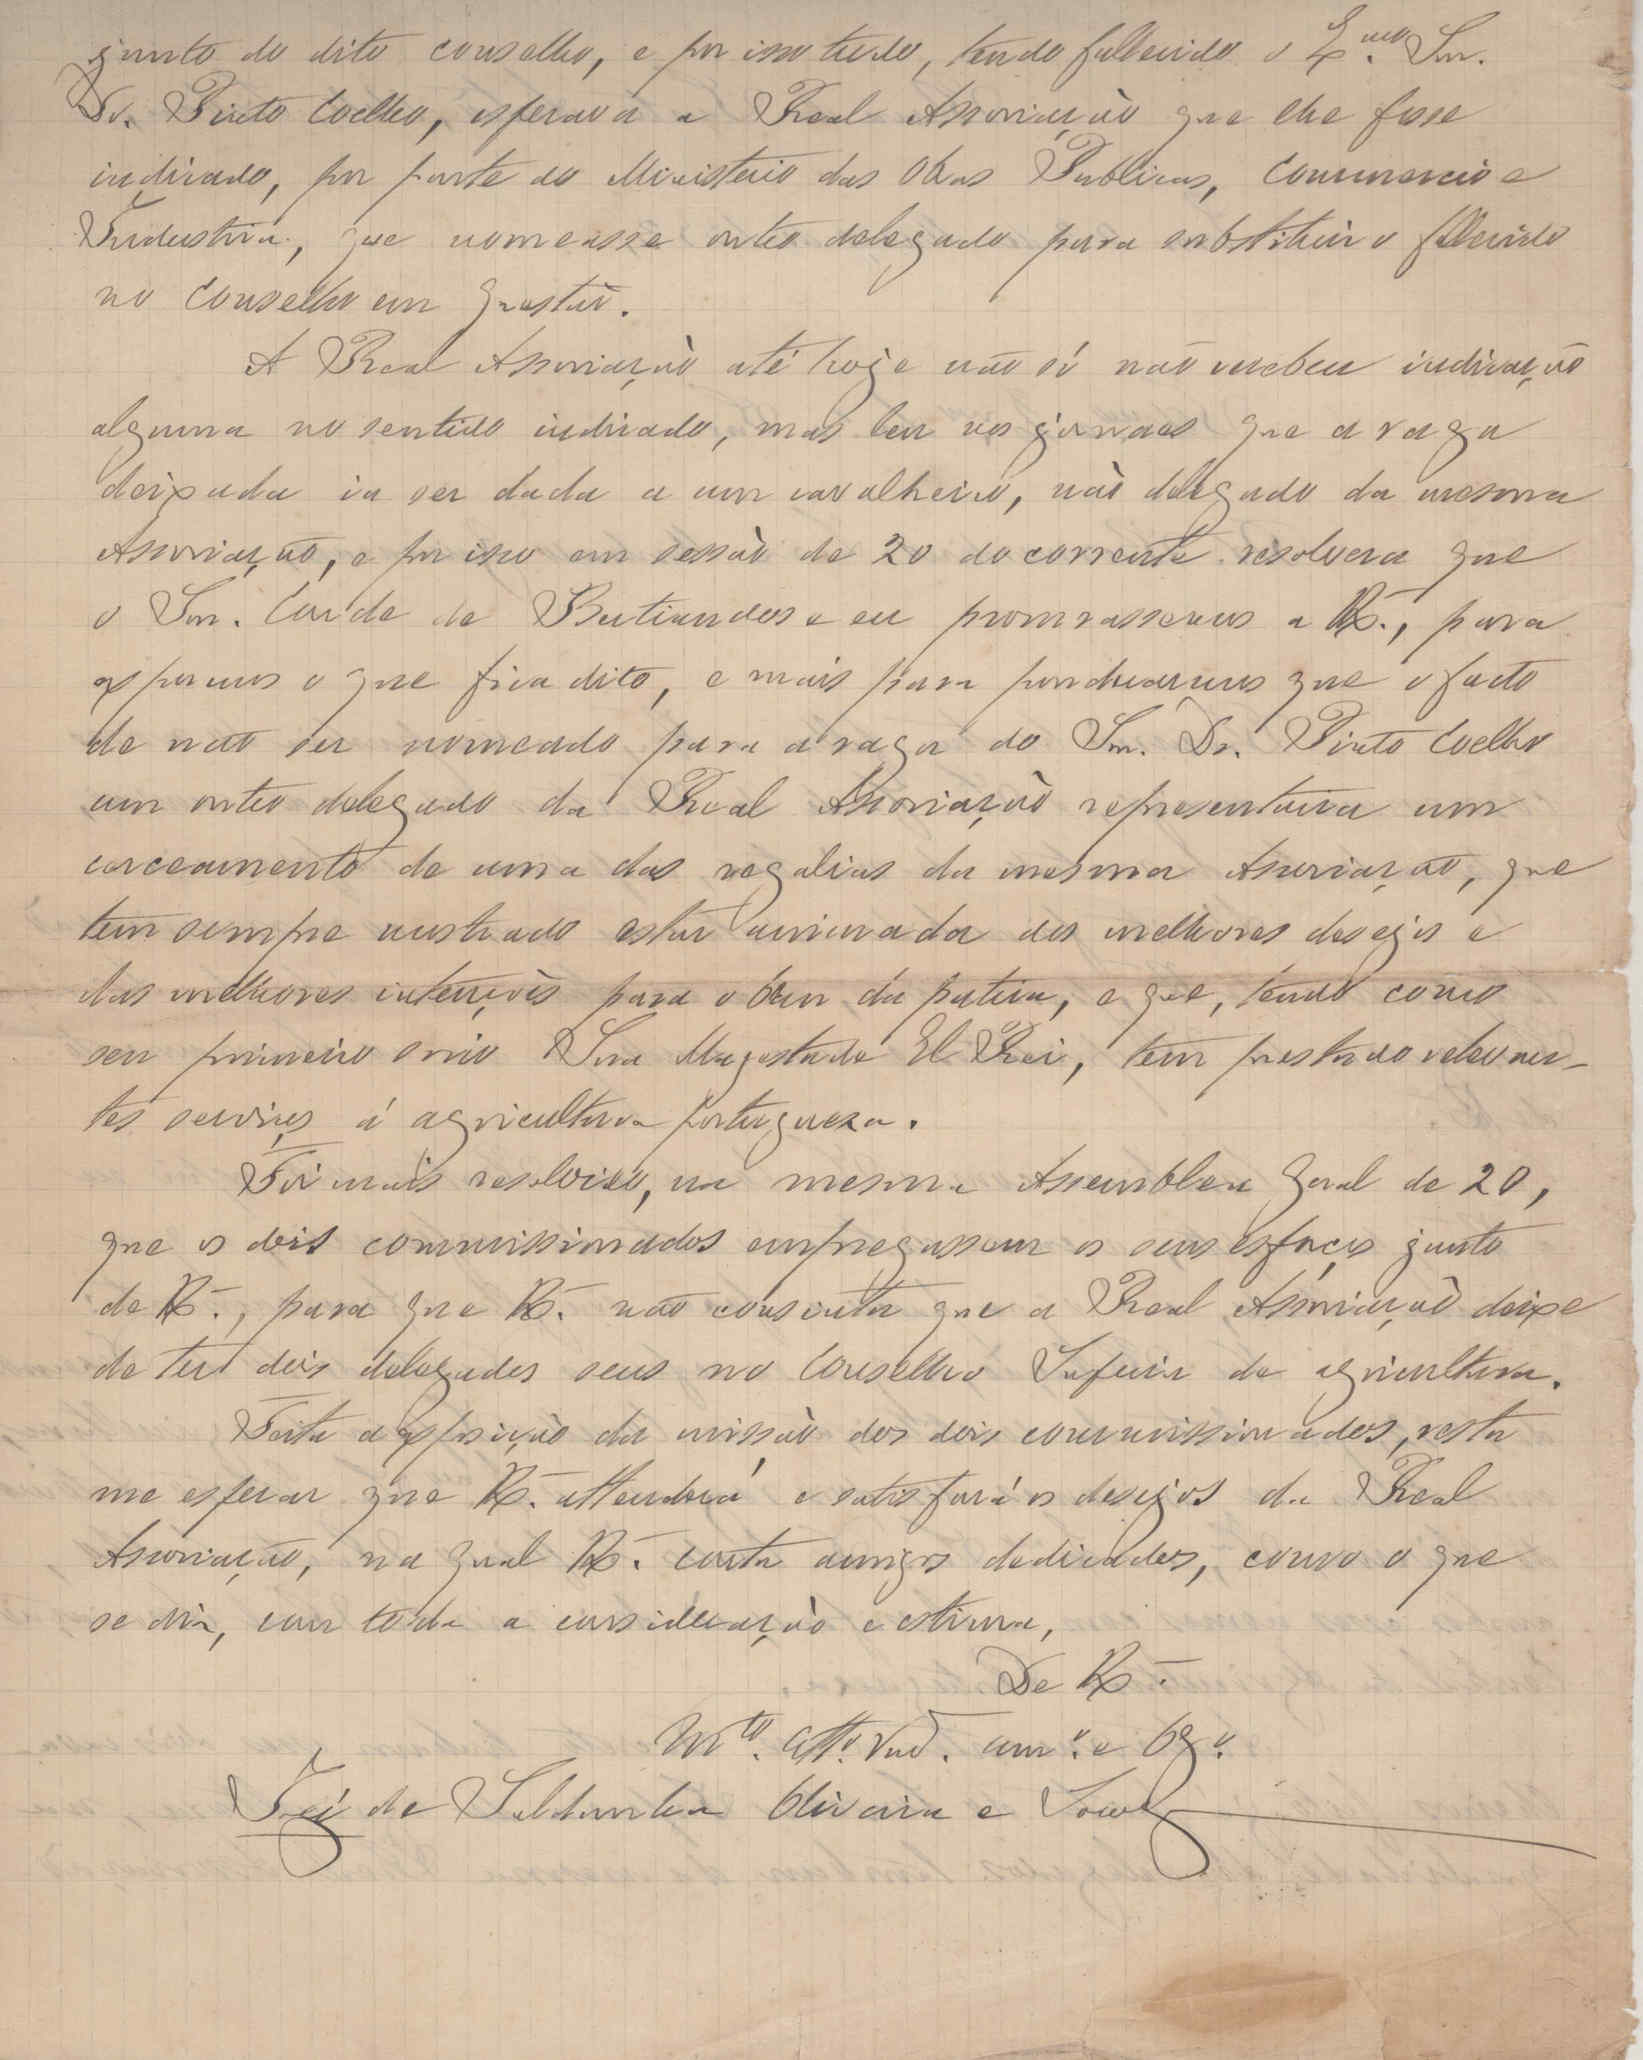 junto do dito conselho, e por isso tudo, tendo fallecido o Ex.mo Snr.
Dr. Pinto Coelho, esperava a Real Associação que lhe fosse
indicado, por parte do Ministerio das Obras Publicas, Commercio e
Industria, que nomeasse outro delegado para substituir o fallecido
no Conselho em questão.
A Real Associação até hoje não só não recebeu indicação
alguma no sentido indicado, mas leu nos jornaes que a vaga
deixada ia ser dada a um cavalheiro, não delegado da mesma
Associação, e por isso em sessão de 20 do corrente resolvera que
o Snr. Conde de Bertiandos e eu procurassemos a V. Ex.ª, para
expormos o que fica dito, e mais para ponderarmos que o facto
de não ser nomeado para a vaga do Snr. Dr. Pinto Coelho
um outro delegado da Real Associação representaria um
cerceamento de uma das regalias da mesma Associação, que
tem sempre mostrado estar animada dos melhores desejos e
das melhores intenções para o bem da patria, e que, tendo como
seu primeiro socio Sua Magestade El-Rei, tem prestado relevan-
tes serviços á agricultura portugueza.
Foi mais resolvido, na mesma Assemblea Geral de 20,
que os dois commissionados empregassem os seus esforços junto
de V. Ex.ª, para que V. Ex.ª não consinta que a Real Associação deixe
de ter dois delegados seus no Conselho Superior de agricultura.
Feita a exposição da missão dos dois commissionados, resta
me esperar que V. Ex.ª attenderá e satisfará os desejos da Real
Associação, na qual V. Ex.ª conta amigos dedicados, como o que
se diz, com toda a consideração e estima,
De V. Ex.ª
M.to att.o ven.or am.o e obg.o
José de Saldanha Oliveira e Souza